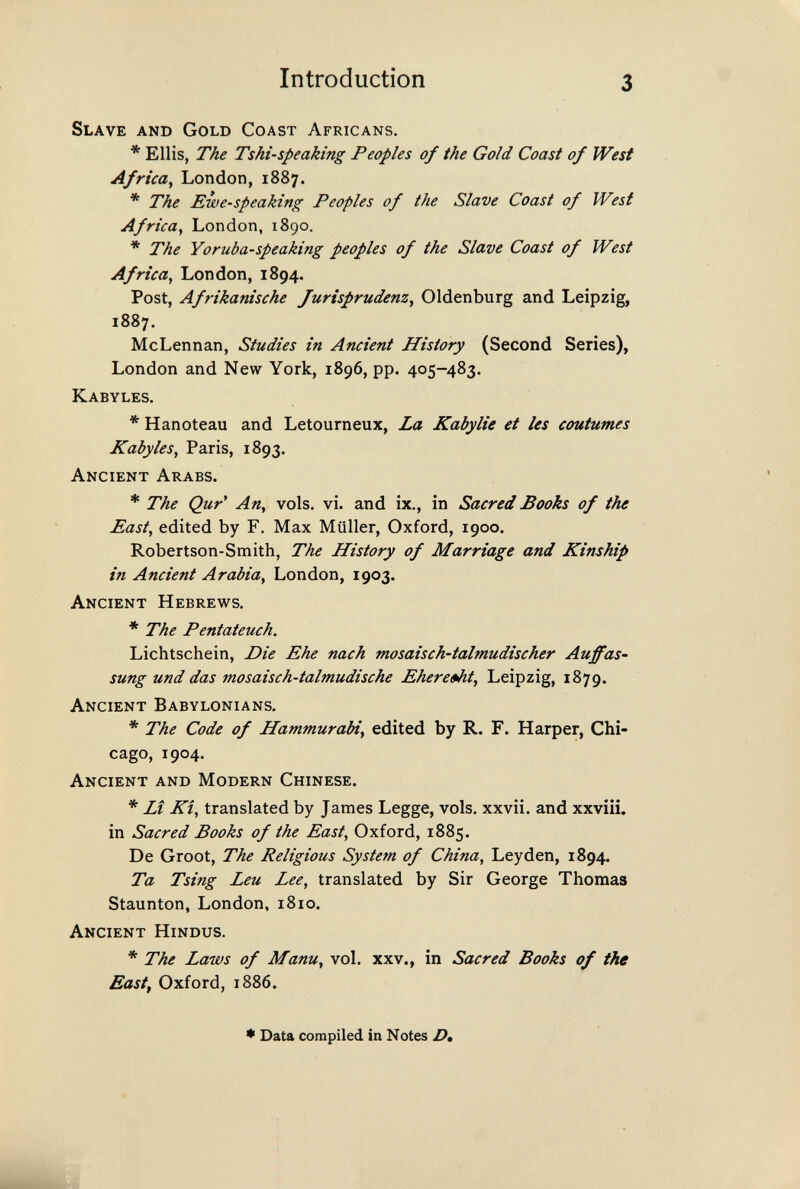 Introduction 3
SLAVE AND GOLD COAST AFRICANS.
* Ellis, The Tshi-speaking Peoples of the Gold Coast of West
Africa, London, 1887.
* The Ewe-speaking Peoples of the Slave Coast of West
Africa, London, 1890.
* The Yoruba-speaking peoples of the Slave Coast of West
Africa, London, 1894.
Post, Afrikanische Jurisprudenz, Oldenburg and Leipzig,
1887.
McLennan, Studies in Ancient History (Second Series),
London and New York, 1896, pp. 405–483.
KABYLES.
* Hanoteau and Letourneux, La Kabylie et les coutumes
Kabyles, Paris, 1893.
ANCIENT ARABS.
* The Qur' An, vols. vi. and ix., in Sacred Books of the
East, edited by F. Max Müller, Oxford, 1900.
Robertson-Smith, The History of Marriage and Kinship
in Ancient Arabia, London, 1903.
ANCIENT HEBREWS.
* The Pentateuch.
Lichtschein, Die Ehe nach mosaisch-talmudischer Auffas-
sung und das mosaisch-talmudische Eherecht, Leipzig, 1879.
ANCIENT BABYLONIANS.
* The Code of Hammurabi, edited by R. F. Harper, Chi-
cago, 1904.
ANCIENT AND MODERN CHINESE.
* Lî Kî, translated by James Legge, vols. xxvii. and xxviii.
in Sacred Books of the East, Oxford, 1885.
De Groot, The Religious System of China, Leyden, 1894.
Ta Tsing Leu Lee, translated by Sir George Thomas
Staunton, London, 1810.
ANCIENT HINDUS.
* The Laws of Manu, vol. xxv., in Sacred Books of the
East, Oxford, 1886.
* Data compiled in Notes D.